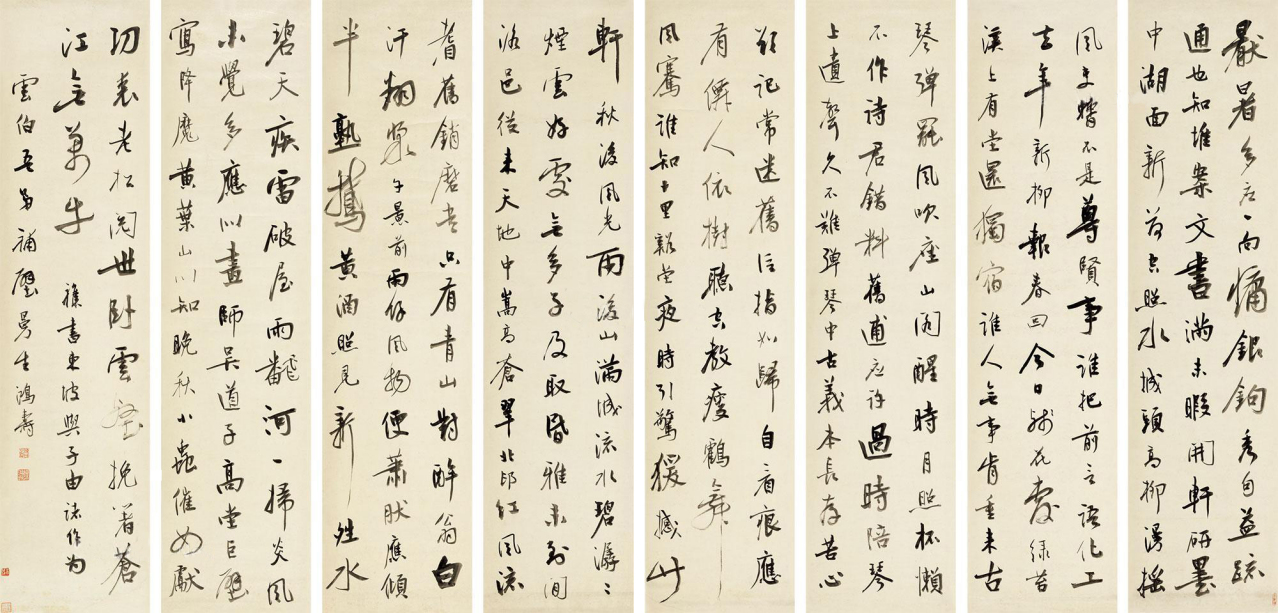 厭暑多應一向慵銀鉤秀句益疏
通也知堆案文書滿未暇開軒研墨
中湖面新荷空照水城頭高柳漫搖
風吏曹不是尊賢事誰把前言語化工
去年新柳報春回今日殘花覆綠苔
溪上有堂還獨宿誰人無事肯重來古
琴彈罷風吹座山閣醒時月照杯懶
不作詩君錯料舊逋應許過時陪琴
上遺聲久不彈琴中古義本長存苦心
欲記常迷舊信指如歸自看痕應
有僊人依樹聽空教瘦鶴舞
風騫誰知千里溪堂夜時引驚猿撼竹
軒 秋後風光雨後山滿城流水碧潺潺
煙雲好處無多子及取昏雅未到間
洛邑從來天地中嵩高蒼翠北邙紅風流
耆舊銷磨盡只有青山對醉翁白
汗翻漿午景前雨餘風物便蕭然應傾
半熟鵝黃酒照見新晴水
碧天疾雷破屋雨翻河一掃炎風
未覺多應似畫師吳道子高堂巨壁
寫降魔黃葉山川知晚秋小蟲催女獻
功裘老松閱世臥雲壑挽著蒼
江無萬牛
雜書東坡與子由諸作為
雲伯吾弟補壁曼生鴻壽